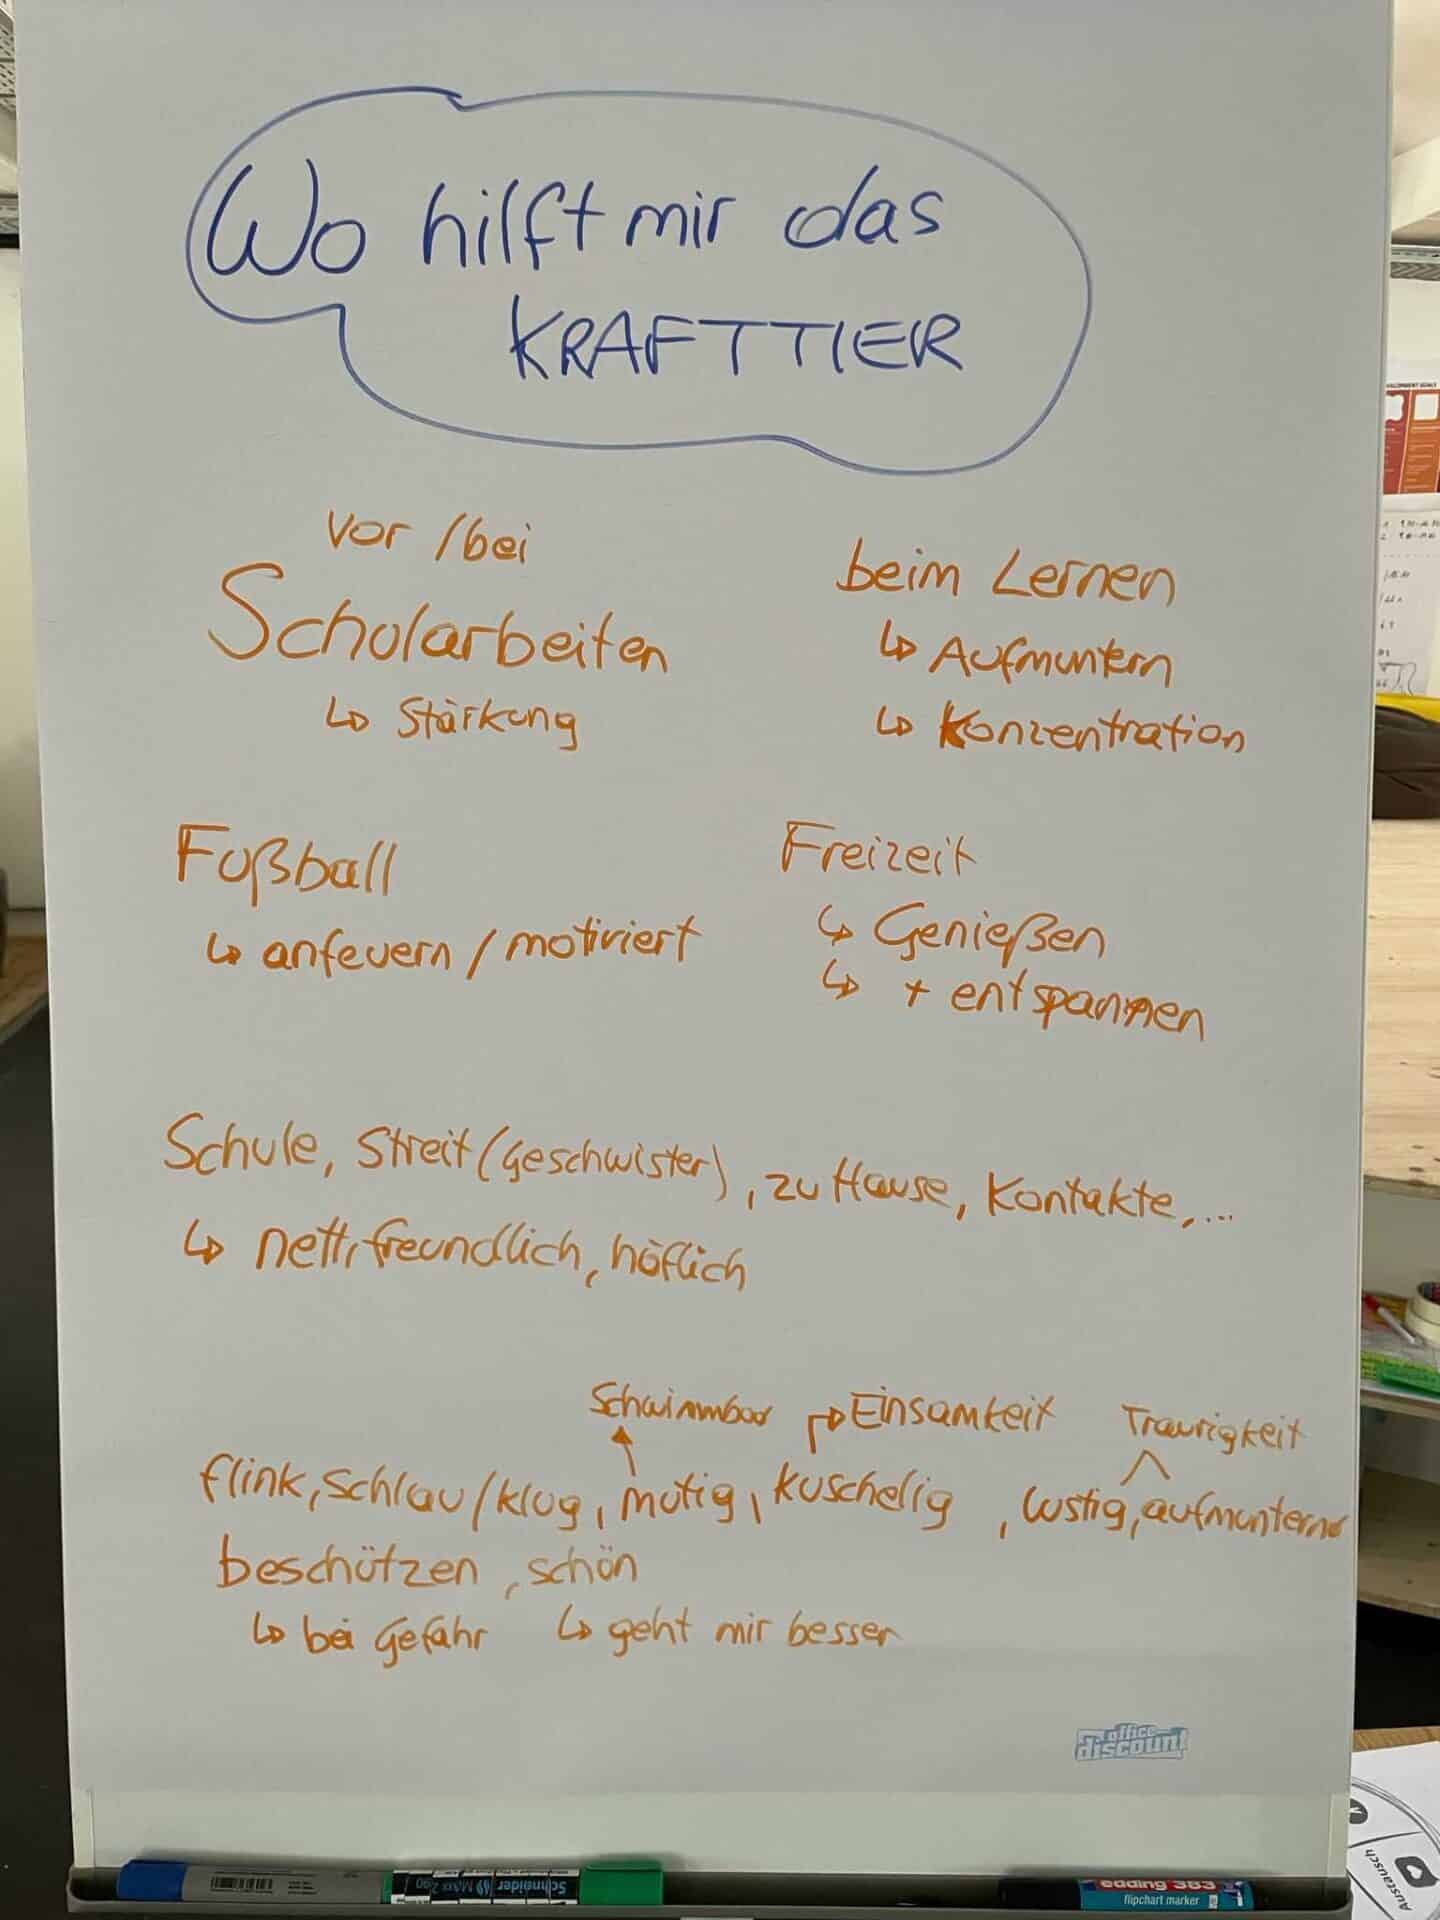 Wo hilft mir das
KRAFTTIER
vor / bei
Schularbeiten
↳ Stärkung
beim Lernen
↳ Aufmuntern
↳ Konzentration
Fußball
↳ anfeuern / motiviert
Freizeit
↳ Genießen
↳ + entspannen
Schule, Streit (Geschwister), zu Hause, Kontakte, ...
↳ nett, freundlich, höflich
Schwimmbad
Einsamkeit
Traurigkeit
flink, schlau / klug, mutig, kuschelig, lustig, aufmunternd
beschützen, schön
↳ bei Gefahr
↳ geht mir besser
office
discount
Schneider
Maxx 290
edding 383
flipchart marker
Austausch